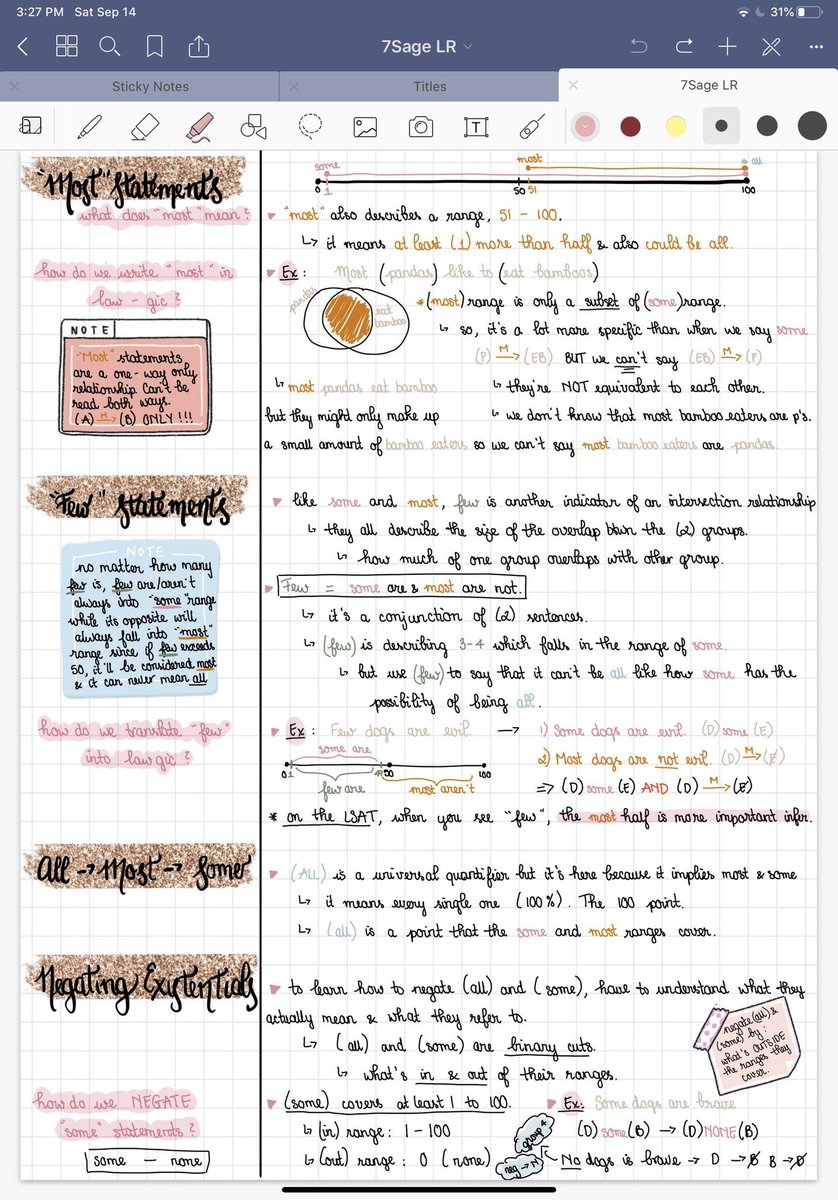 3:27 PM Sat Sep 14
31%
7Sage LR
Sticky Notes
Titles
7Sage LR
"Most" Statements
some
most
all
0 1 50 51 100
what does "most" mean?
"most" also describes a range, 51 - 100.
↳ it means at least (1) more than half & also could be all.
how do we write "most" in
law - gic?
Ex: Most (pandas) like to (eat bamboos)
pandas
eat
bamboo
*(most) range is only a subset of (some) range.
↳ so, it's a lot more specific than when we say some
(P) M→ (EB) BUT we can't say (EB) M→ (P)
NOTE
"Most" statements
are a one-way only
relationship. Can't be
read both ways.
(A) M→ (B) ONLY!!!
↳ most pandas eat bamboo
↳ they're NOT equivalent to each other.
but they might only make up
↳ we don't know that most bamboo eaters are p's.
a small amount of bamboo eaters so we can't say most bamboo eaters are pandas.
"Few" Statements
like some and most, few is another indicator of an intersection relationship
↳ they all describe the size of the overlap btwn the (2) groups.
↳ how much of one group overlaps with other group.
NOTE
no matter how many
few is, few are/aren't
always into "some" range
while its opposite will
always fall into "most"
range since if few exceeds
50, it'll be considered most
& it can never mean all
Few = some are & most are not.
↳ it's a conjunction of (2) sentences.
↳ (few) is describing 3-4 which falls in the range of some.
↳ but use (few) to say that it can't be all like how some has the
possibility of being all.
how do we translate "few"
into lawgic?
Ex: Few dogs are evil. → 1) Some dogs are evil. (D) some (E)
some are
2) Most dogs are not evil. (D) M→ (E̸)
0 1 49 50 100
few are
most aren't
=> (D) some (E) AND (D) M→ (E̸)
* on the LSAT, when you see "few", the most half is more important infer.
All → Most → Some
(ALL) is a universal quantifier but it's here because it implies most & some
↳ it means every single one (100%). The 100 point.
↳ (all) is a point that the some and most ranges cover.
Negating Existentials
to learn how to negate (all) and (some), have to understand what they
actually mean & what they refer to.
↳ (all) and (some) are binary cuts.
↳ what's in & out of their ranges.
negate (all) &
(some) by:
what's OUTSIDE
the ranges they
cover.
how do we NEGATE
"some" statements?
some — none
(some) covers at least 1 to 100.
↳ (in) range: 1 - 100
↳ (out) range: 0 (none)
Ex: Some dogs are brave
(D) some (B) → (D) NONE (B)
group 4
neg → N
No dogs is brave → D → B̸ B → D̸